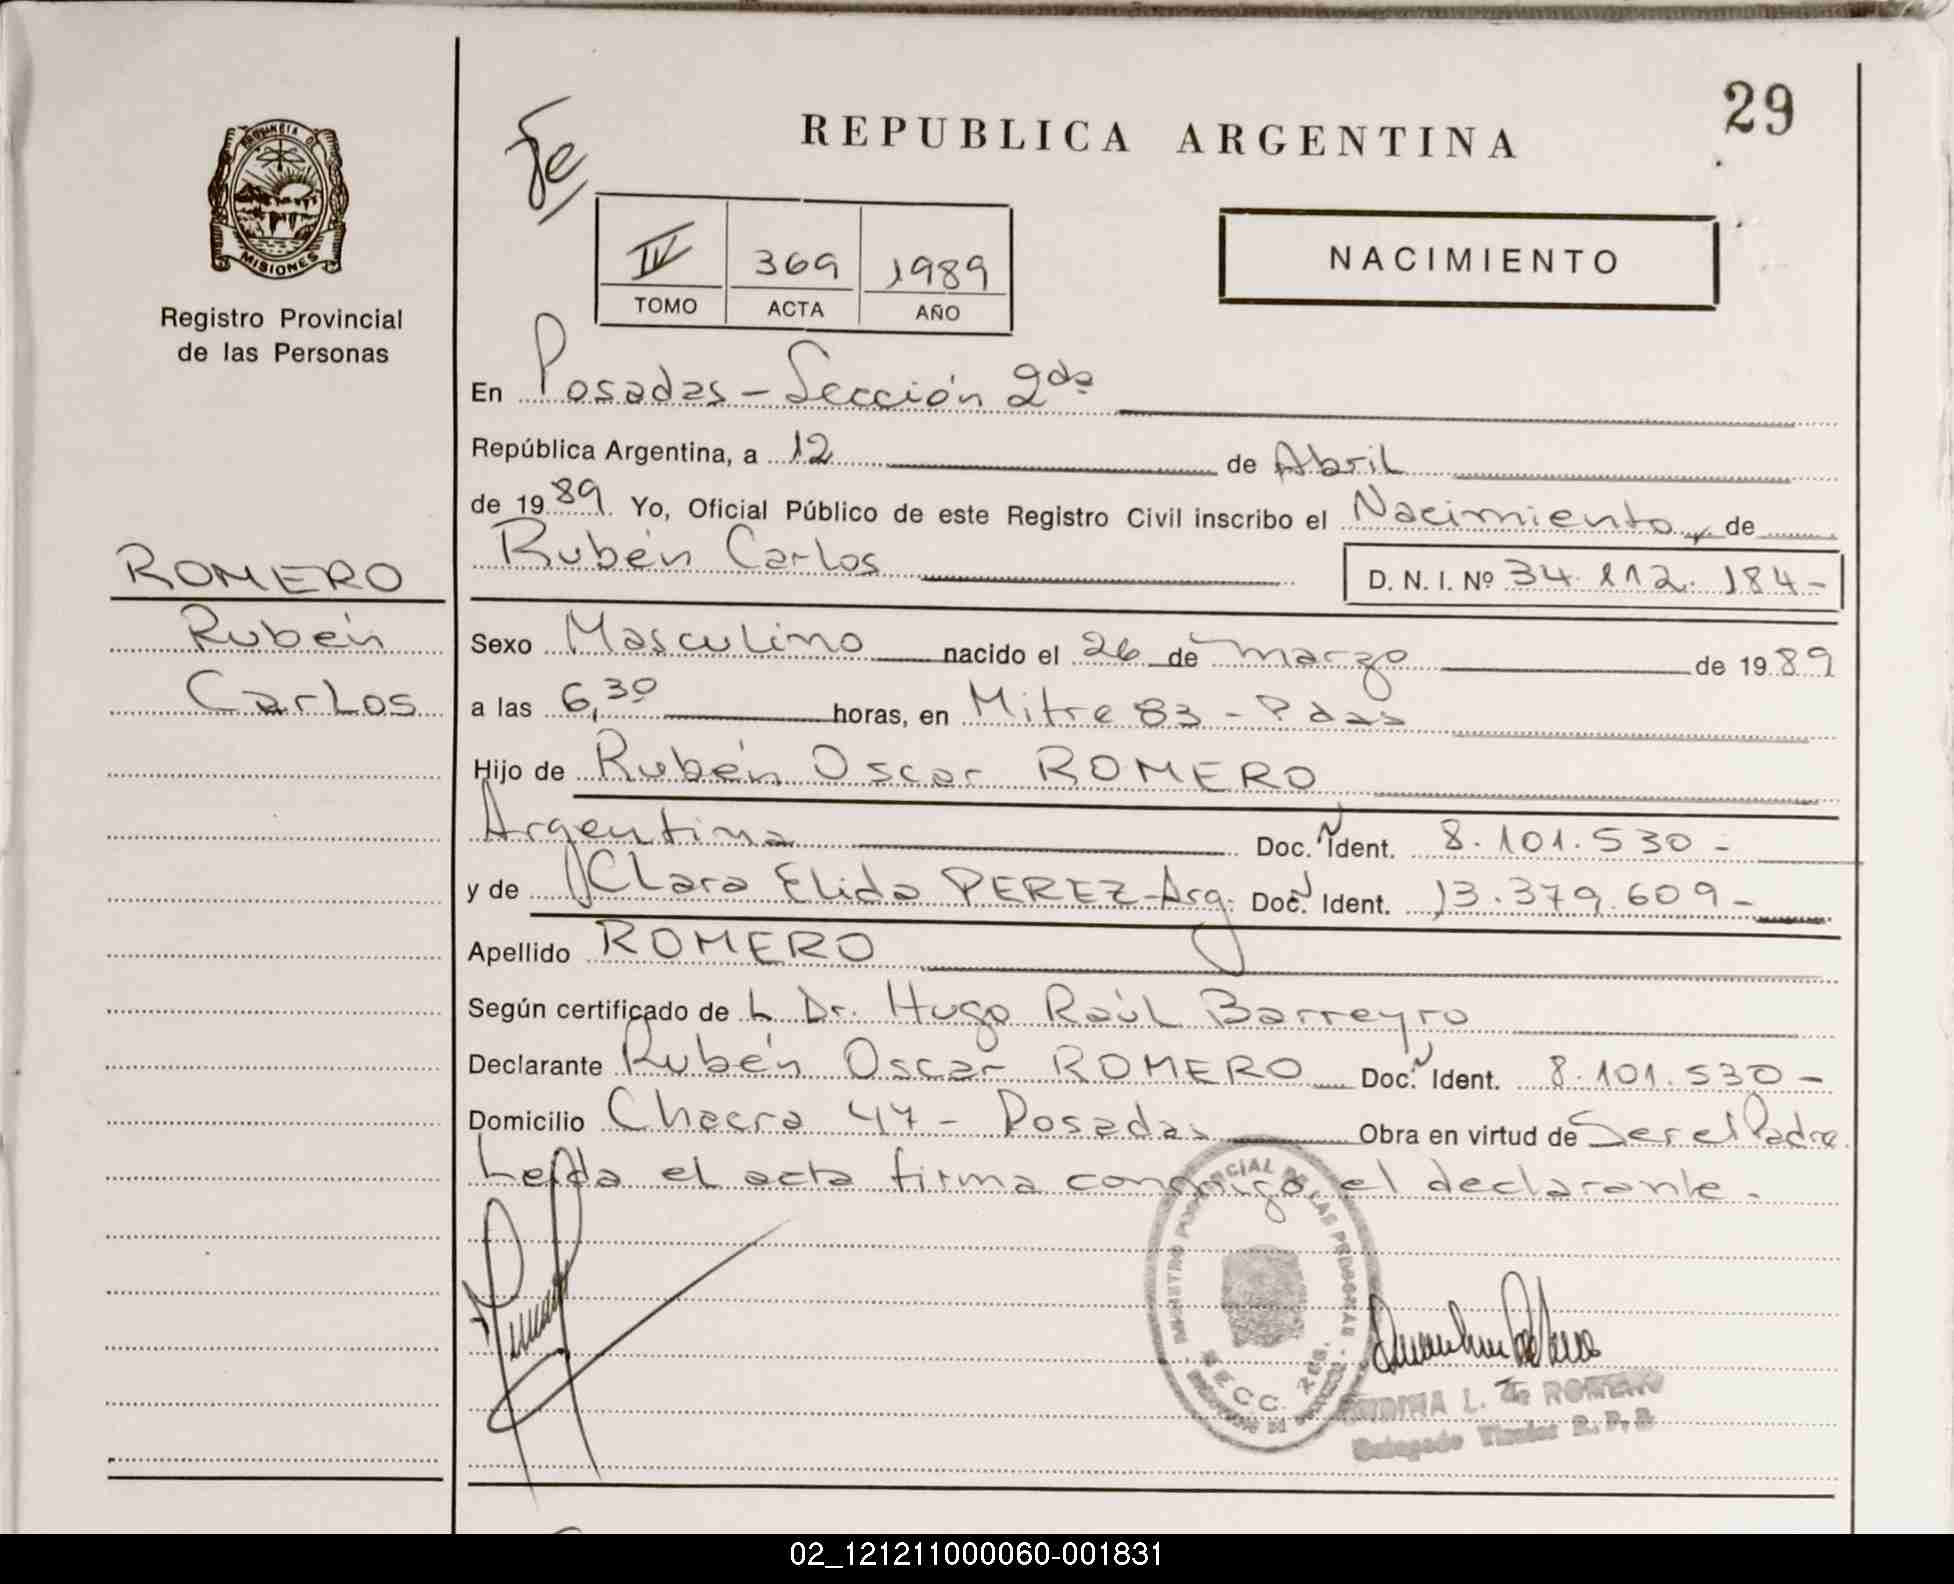 29
REPUBLICA ARGENTINA
PROVINCIA DE
MISIONES
Registro Provincial
de las Personas
IV 369 1989
TOMO ACTA AÑO
NACIMIENTO
En Posadas - Sección 2da
República Argentina, a 12 de Abril
de 1989. Yo, Oficial Público de este Registro Civil inscribo el Nacimiento de
Rubén Carlos D. N. I. Nº 34.112.184-
ROMERO
Rubén
Carlos
Sexo Masculino nacido el 26 de marzo de 1989
a las 6,30 horas, en Mitre 83 - Pdas
Hijo de Rubén Oscar ROMERO
Argentina Doc. Ident. 8.101.530-
y de Clara Elida PEREZ-Arg. Doc. Ident. 13.379.609-
Apellido ROMERO
Según certificado de L Dr. Hugo Raúl Barreyro
Declarante Rubén Oscar ROMERO Doc. Ident. 8.101.530-
Domicilio Chacra 47 - Posadas Obra en virtud de Ser el Padre
Leída el acta firma conmigo el declarante.
L. de ROMERO
Titular R. P. P.
02_121211000060-001831